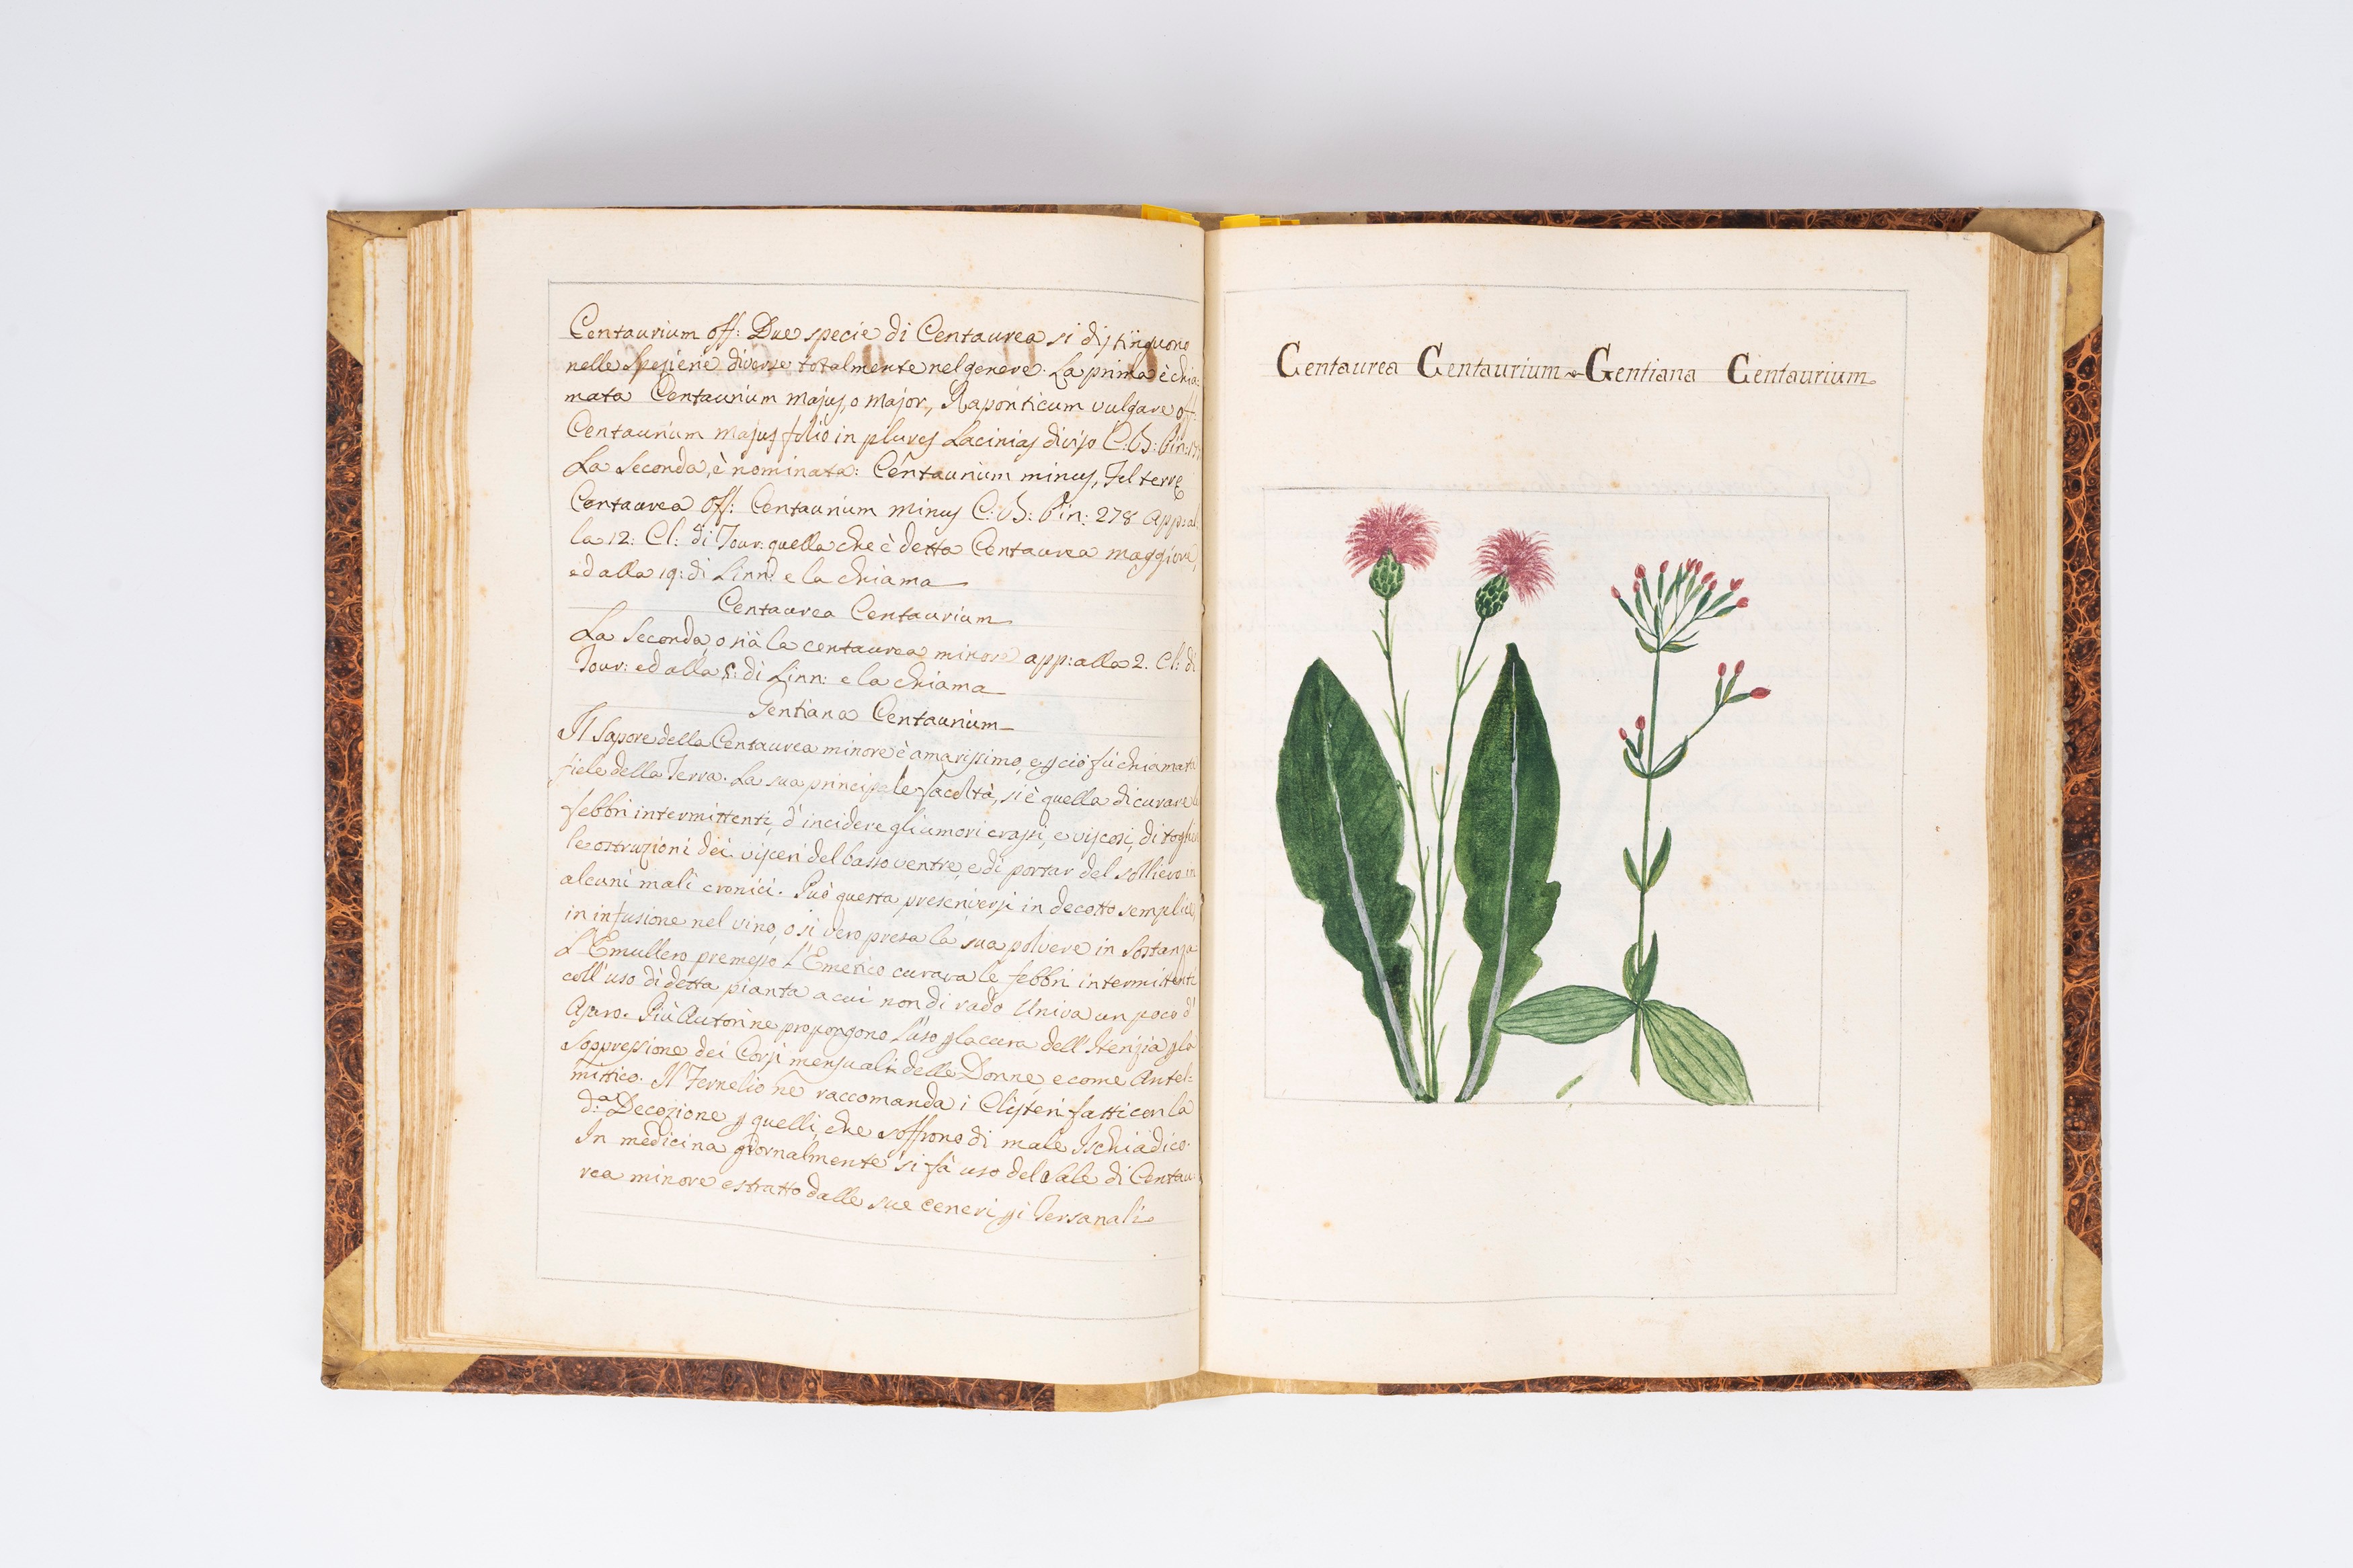 Centaurium off: Due specie di Centaurea si distinguono
nelle Spezierie diverse totalmente nel genere. La prima è chia:
mata Centaurium majus, o major, Raponticum vulgare off:
Centaurium majus folio in plures Lacinias diviso C: B: Pin:
La Seconda, è nominata: Centaurium minus, Fel terrę
Centaurea Off: Centaurium minus C: B: Pin: 278 App: al
la 12: Cl: di Tour: quella che è detta Centaurea maggiore,
ed alla 19: di Linn: e la chiama
Centaurea Centaurium
La Seconda, o sià la centaurea minore app: alla 2. Cl: di
Tour: ed alla 5: di Linn: e la chiama
Gentiana Centaurium
Il Sapore della Centaurea minore è amarissimo, e ciò fù chiamata
fiele della Terra. La sua principale facoltà, si è quella di curare
febbri intermittenti, d'incidere gli umori crassi, e viscosi, di toglie
le ostruzioni dei visceri del basso ventre, e di portar del sollievo in
alcuni mali cronici. Può questa prescriversi in decotto semplice,
in infusione nel vino, o si vero presa la sua polvere in Sostanza
L'Emullero premesso l'Emetico curava le febbri intermittenti
coll'uso di detta pianta a cui non di rado Univa un poco d'
Azaro. Più Autori ne propongono l'uso la cura dell'Iterizia la
Soppressione dei Corsi mensuali delle Donne, e come Antel:
mittico. Il Fernelio ne raccomanda i Clisteri fatti con la
d:ᵃ Decozione quelli, che soffrono di male Ischiadico.
In medicina giornalmente si fà uso del Sale di Centau:
rea minore estratto dalle sue ceneri
Centaurea Centaurium - Gentiana Centaurium